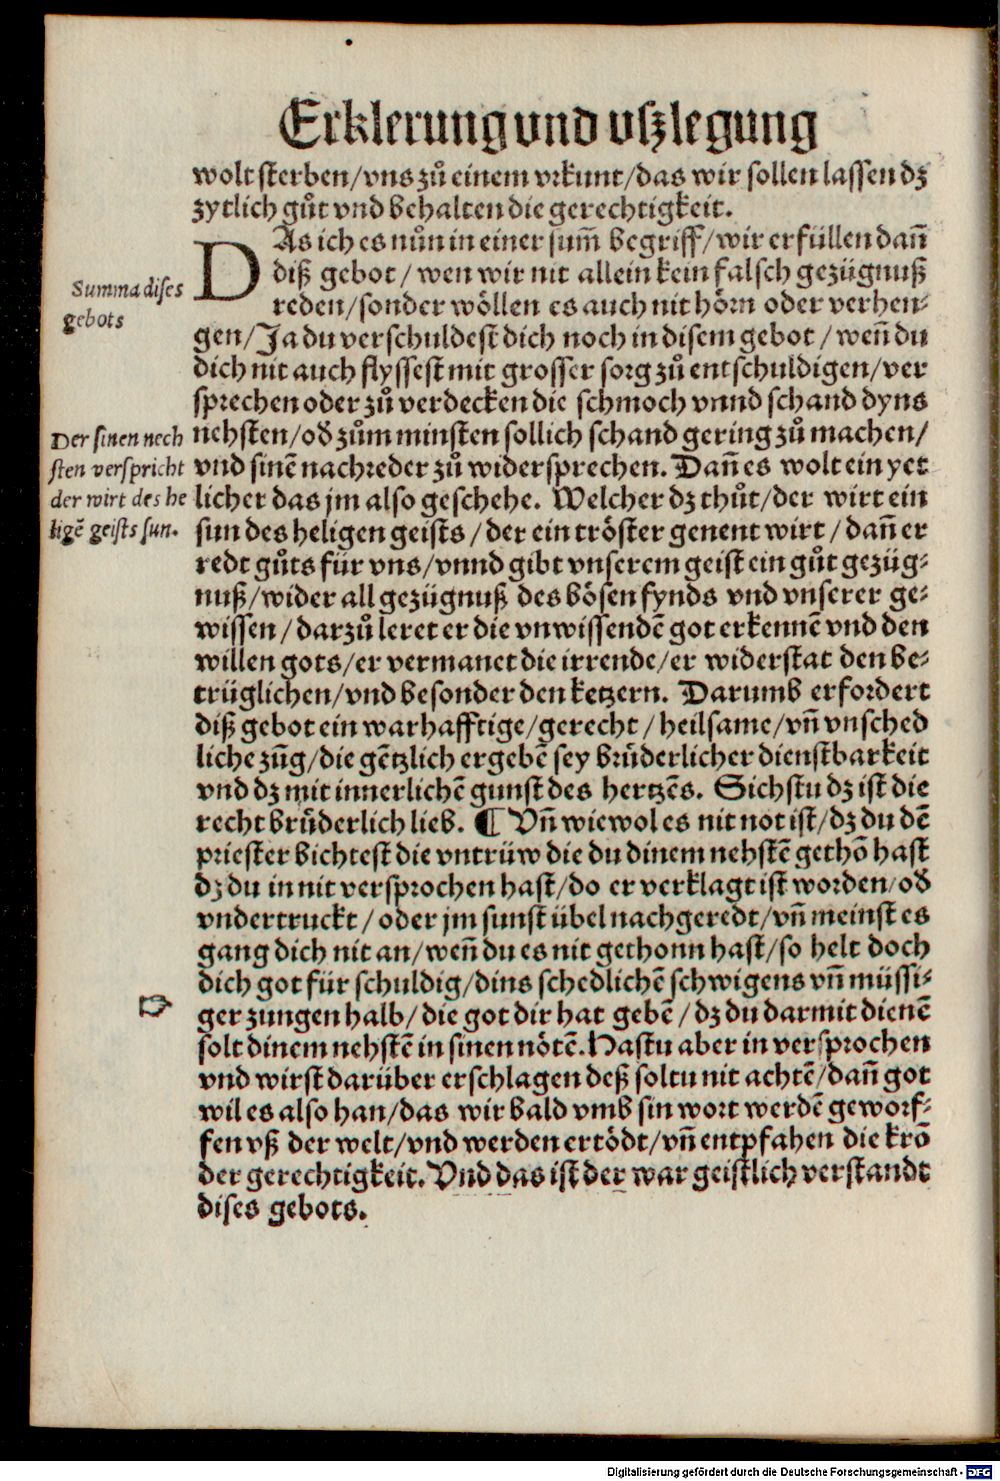 Erklerung vnd vſzlegung
wolt sterben/vns zů einem vrkunt/das wir sollen lassen dz
zytlich gůt vnd behalten die gerechtigkeit.
DAs ich es nůn in einer sum̃ begriff/wir erfüllen dañ
diß gebot/wen wir nit allein kein falsch gezügnuß
Summa dises
reden/sonder wöllen es auch nit hörn oder verhen⸗
gebots
gen/Ja du verschuldest dich noch in disem gebot/weñ du
dich nit auch flyssest mit grosser sorg zů entschuldigen/ver
sprechen oder zů verdecken die schmoch vnnd schand dyns
Der sinen nech
nehsten/od zům minsten sollich schand gering zů machen/
sten verspricht
vnd sinē nachreder zů widersprechen. Dañ es wolt ein yet
der wirt des he
licher das jm also geschehe. Welcher dz thůt/der wirt ein
ligē geists sun.
sun des heligen geists/der ein tröster genent wirt/dañ er
redt gůts für vns/vnnd gibt vnserem geist ein gůt gezüg⸗
nuß/wider all gezügnuß des bösen fynds vnd vnserer ge⸗
wissen/darzů leret er die vnwissendē got erkennē vnd den
willen gots/er vermanet die irrende/er widerstat den be⸗
trüglichen/vnd besonder den ketzern. Darumb erfordert
diß gebot ein warhafftige/gerecht/heilsame/vñ vnsched
liche zũg/die gētzlich ergebē sey brůderlicher dienstbarkeit
vnd dz mit innerlichē gunst des hertzēs. Sichstu dz ist die
recht brůderlich lieb. ¶ Vñ wiewol es nit not ist/dz du dē
priester bichtest die vntrüw die du dinem nehstē gethō hast
dz du in nit versprochen hast/do er verklagt ist worden/od
vndertruckt/oder jm sunst übel nachgeredt/vñ meinst es
gang dich nit an/weñ du es nit gethonn hast/so helt doch
dich got für schuldig/dins schedlichē schwigens vñ müssi⸗
☞
ger zungen halb/die got dir hat gebē/dz du darmit dienē
solt dinem nehstē in sinen nötē. Hastu aber in versprochen
vnd wirst darüber erschlagen deß soltu nit achtē/dañ got
wil es also han/das wir bald vmb sin wort werdē geworf⸗
fen vß der welt/vnd werden ertödt/vñ entpfahen die krō
der gerechtigkeit. Vnd das ist der war geistlich verstandt
dises gebots.
Digitalisierung gefördert durch die Deutsche Forschungsgemeinschaft - DFG